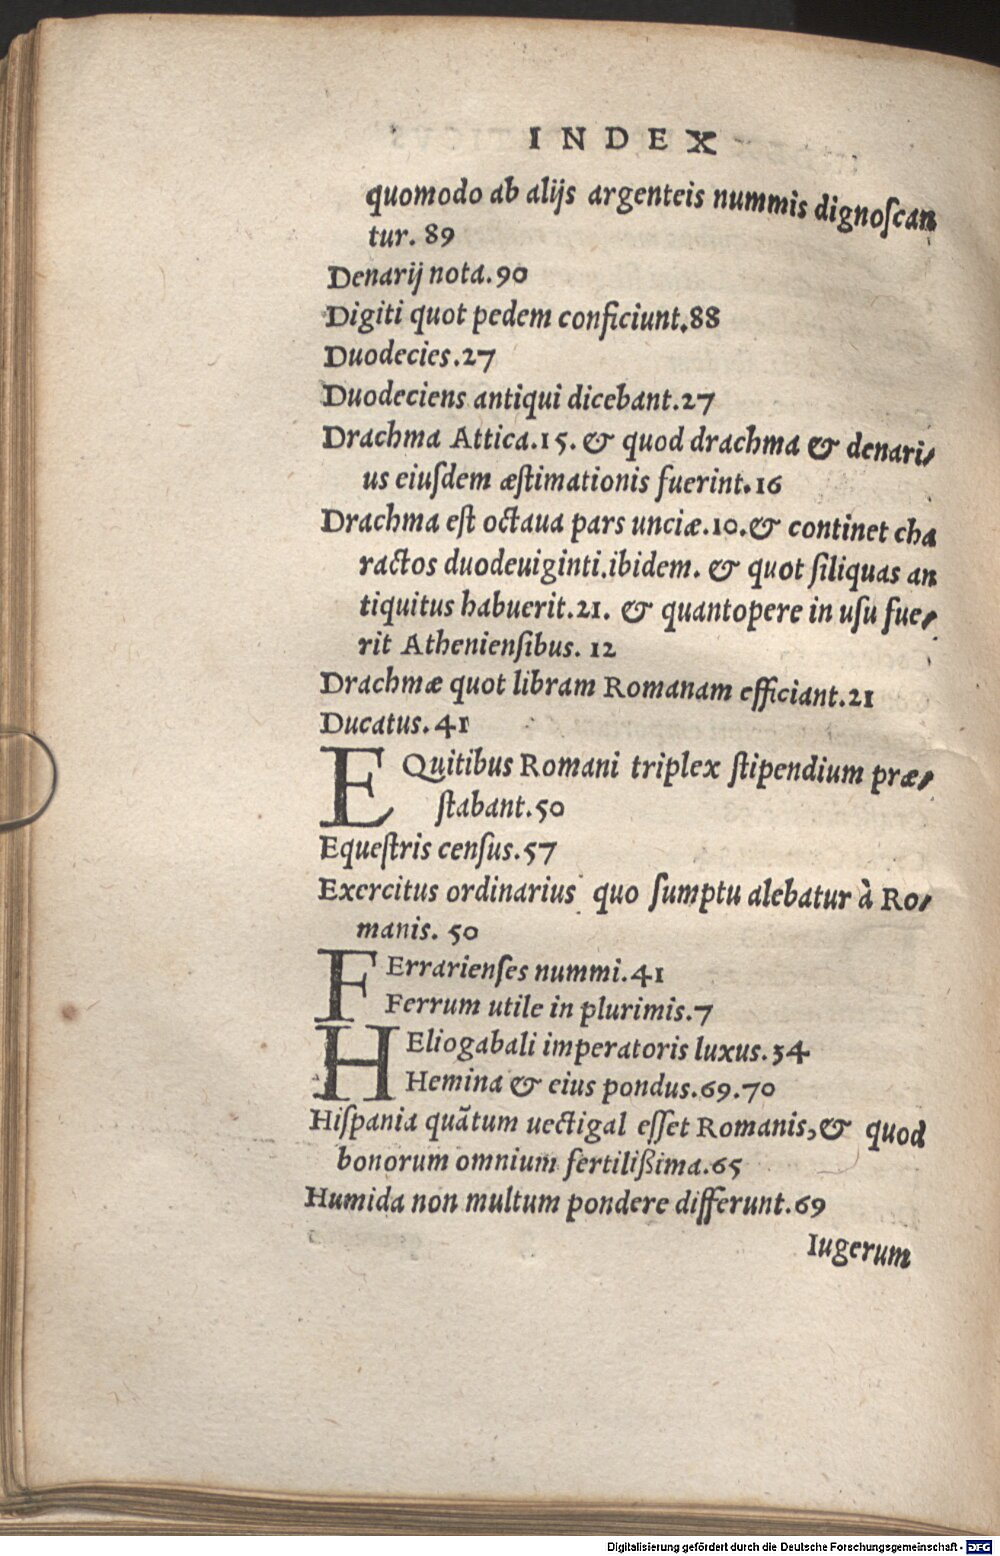 INDEX
quomodo ab alijs argenteis nummis dignoſcan
tur. 89
Denarij nota. 90
Digiti quot pedem conficiunt. 88
Duodecies. 27
Duodeciens antiqui dicebant. 27
Drachma Attica. 15. & quod drachma & denari-
us eiuſdem æſtimationis fuerint. 16
Drachma eſt octaua pars unciæ. 10. & continet cha
ractos duodeuiginti. ibidem. & quot ſiliquas an
tiquitus habuerit. 21. & quantopere in uſu fue-
rit Athenienſibus. 12
Drachmæ quot libram Romanam efficiant. 21
Ducatus. 41
EQuitibus Romani triplex ſtipendium præ-
ſtabant. 50
Equeſtris cenſus. 57
Exercitus ordinarius quo ſumptu alebatur à Ro-
manis. 50
FErrarienſes nummi. 41
Ferrum utile in plurimis. 7
HEliogabali imperatoris luxus. 34
Hemina & eius pondus. 69. 70
Hiſpania quãtum uectigal eſſet Romanis, & quod
bonorum omnium fertilißima. 65
Humida non multum pondere differunt. 69
Iugerum
Digitalisierung gefördert durch die Deutsche Forschungsgemeinschaft - DFG